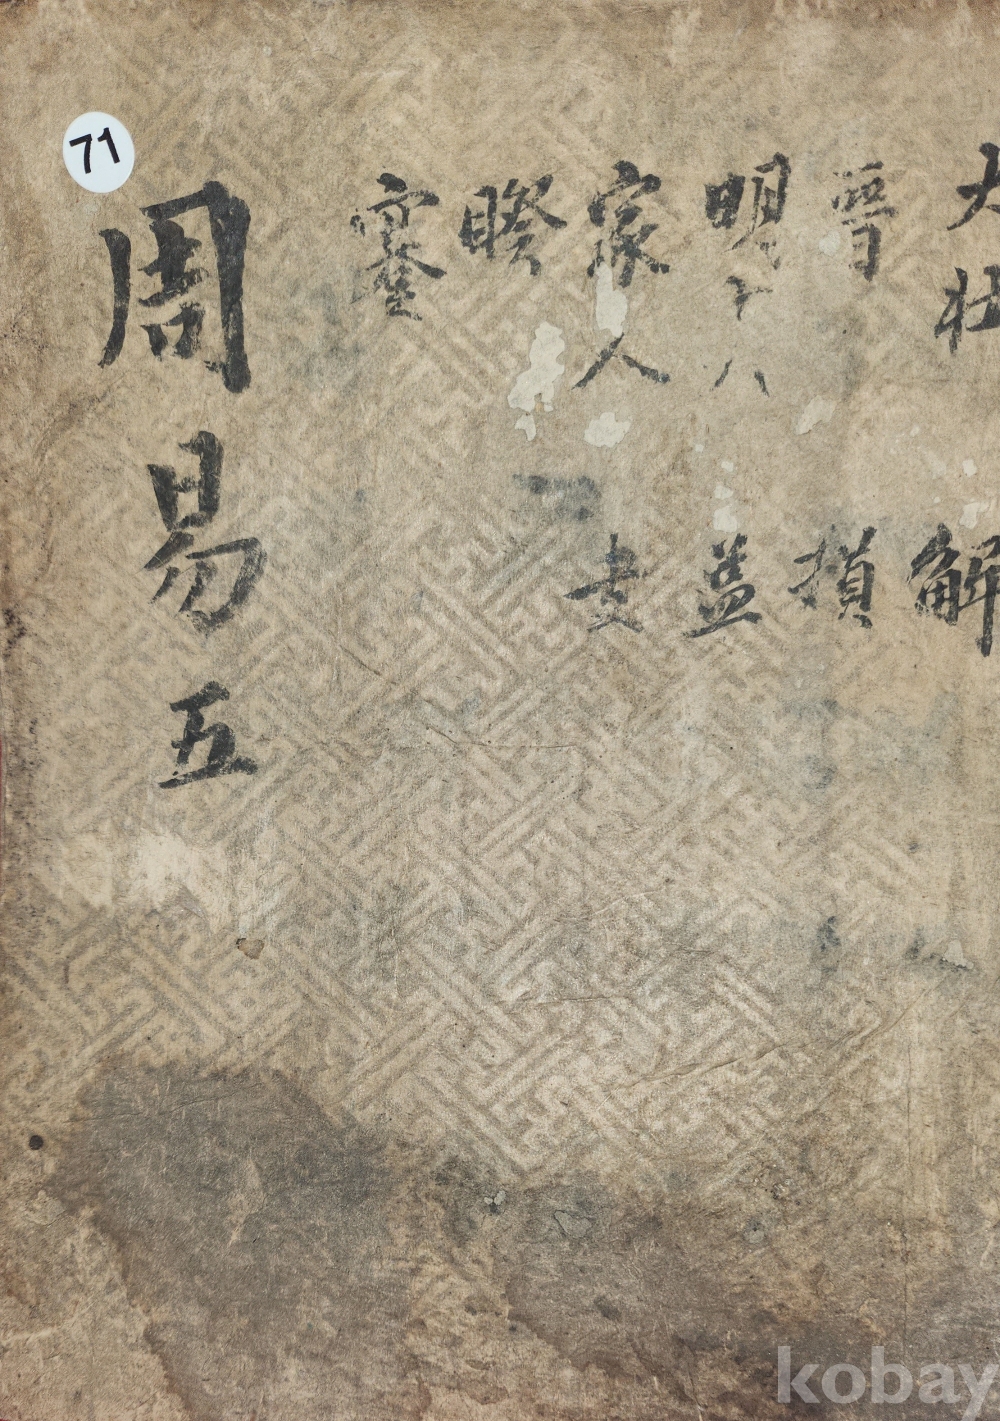 71
大壯
晉
明
家人
睽
蹇
解
損
益
夬
周易五
kobay